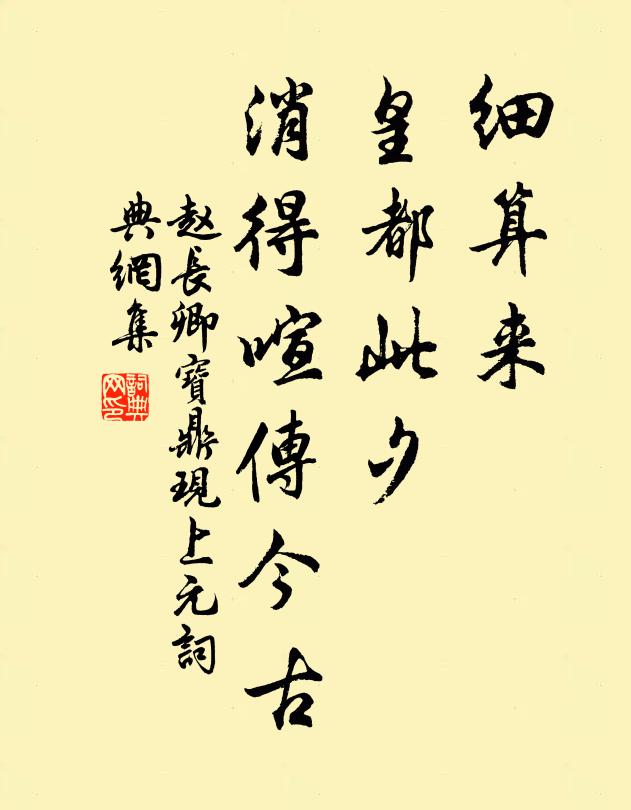 细算来
皇都此夕
消得喧傳今古
赵長卿寶鼎現上元詞
典網集
詞典
网印